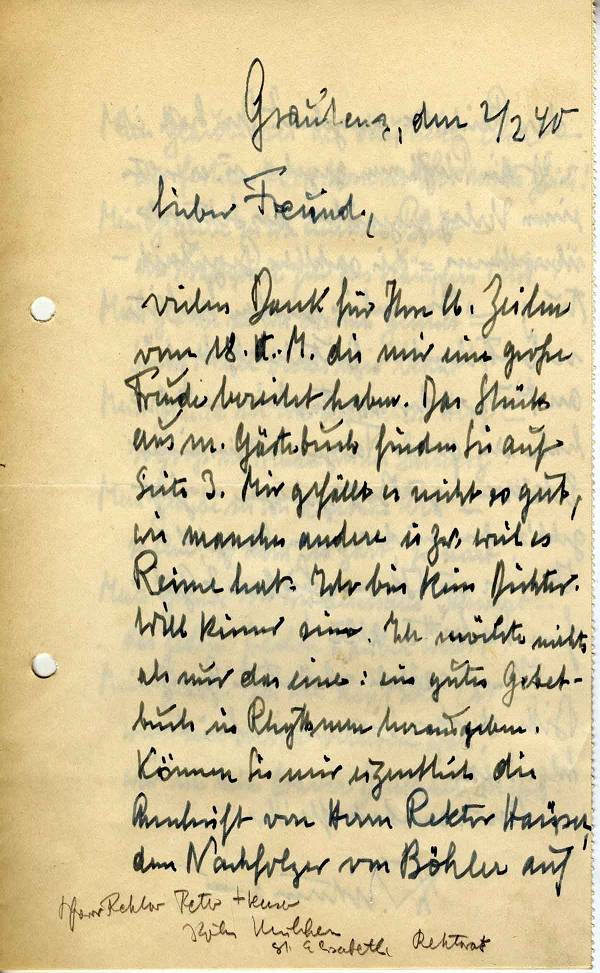 Graudenz, den 2/2 40
Lieber Freund,
vielen Dank für Ihre lb. Zeilen
vom 18. v. M. die mir eine große
Freude bereitet haben. Das Stück
aus m. Gästebuch finden Sie auf
Seite 3. Mir gefällt es nicht so gut,
wie manches andere u zw. weil es
Reime hat. Ich bin kein Dichter.
Will keiner sein. Ich möchte nichts
als nur das eine: ein gutes Gebet-
buch in Rhythmen herausgeben.
Können Sie mir eigentlich die
Anschrift von Herrn Rektor Häuser,
dem Nachfolger von Böhler auf
Herr Rektor Peter
Köln Mülheim
St. Elisabeth Rektorat